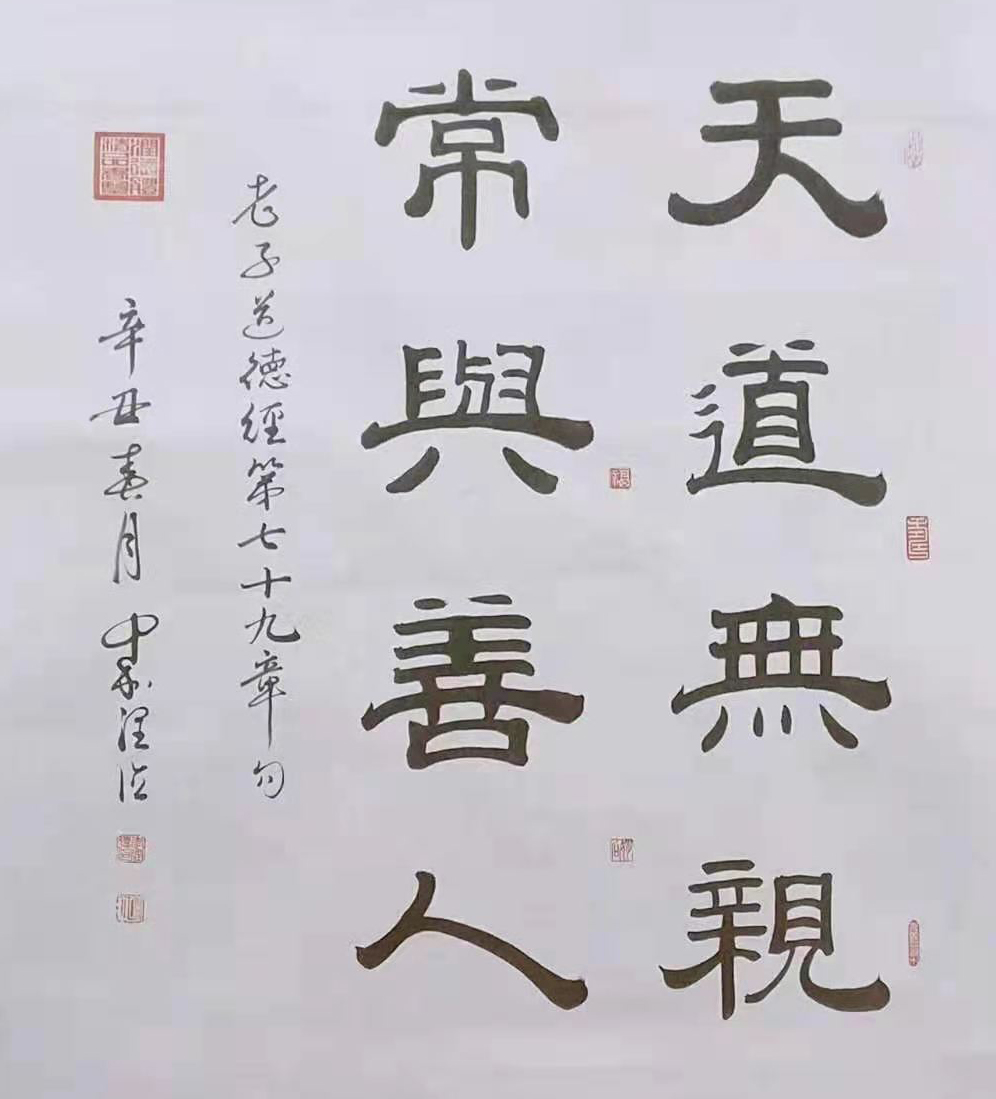 天道無親
常與善人
老子道德經第七十九章句
辛丑春月